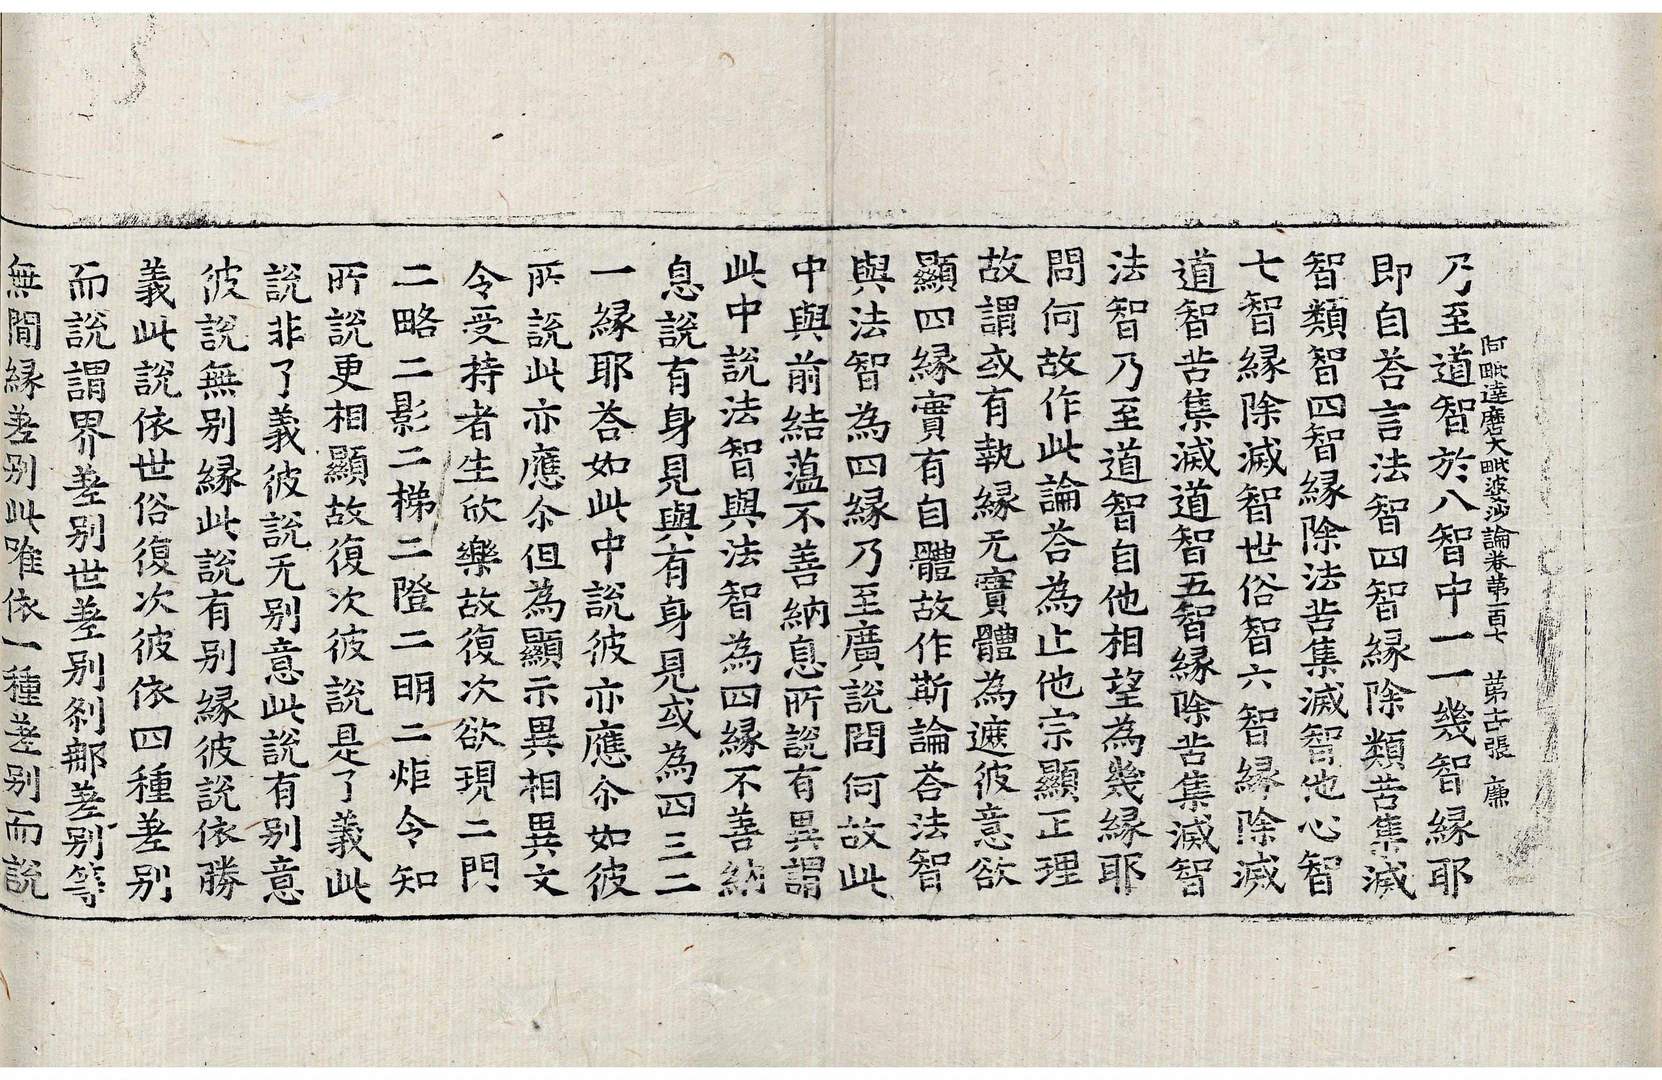 阿毗達磨大毗婆沙論卷第一百七　第十四張　廉
乃至道智於八智中一一幾智緣耶
即自荅言法智四智緣除類苦集滅
智類智四智緣除法苦集滅智他心智
七智緣除滅智世俗智六智緣除滅
道智苦集滅道智五智緣除苦集滅智
法智乃至道智自他相望為幾緣耶
問何故作此論荅為止他宗顯正理
故謂或有執緣无實體為遮彼意欲
顯四緣實有自體故作斯論荅法智
與法智為四緣乃至廣說問何故此
中與前結蘊不善納息所說有異謂
此中說法智與法智為四緣不善納
息說有身見與有身見或為四三二
一緣耶荅如此中說彼亦應尒如彼
所說此亦應尒但為顯示異相異文
令受持者生欣樂故復次欲現二門
二略二影二梯二隥二明二炬令知
所說更相顯故復次彼說是了義此
說非了義彼說无別意此說有別意
彼說無別緣此說有別緣彼說依勝
義此說依世俗復次彼依四種差別
而說謂界差別世差別剎那差別等
無間緣差別此唯依一種差別而說